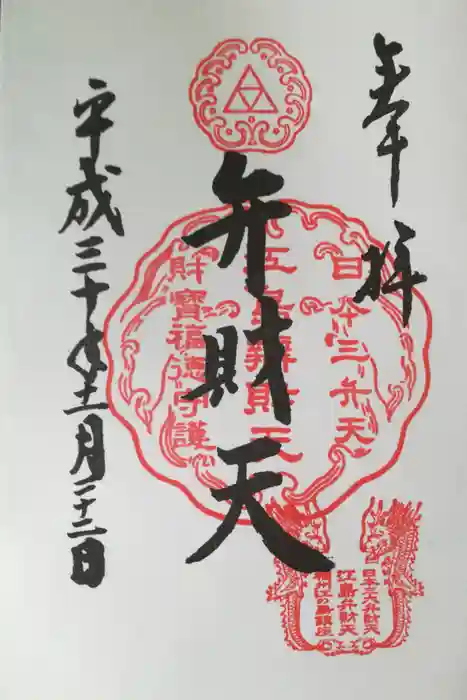 奉拝
日本三弁天
江島辨財天
財寶福徳守護
弁財天
日本三大弁財天
江島弁財天
平成三十年十一月二十二日